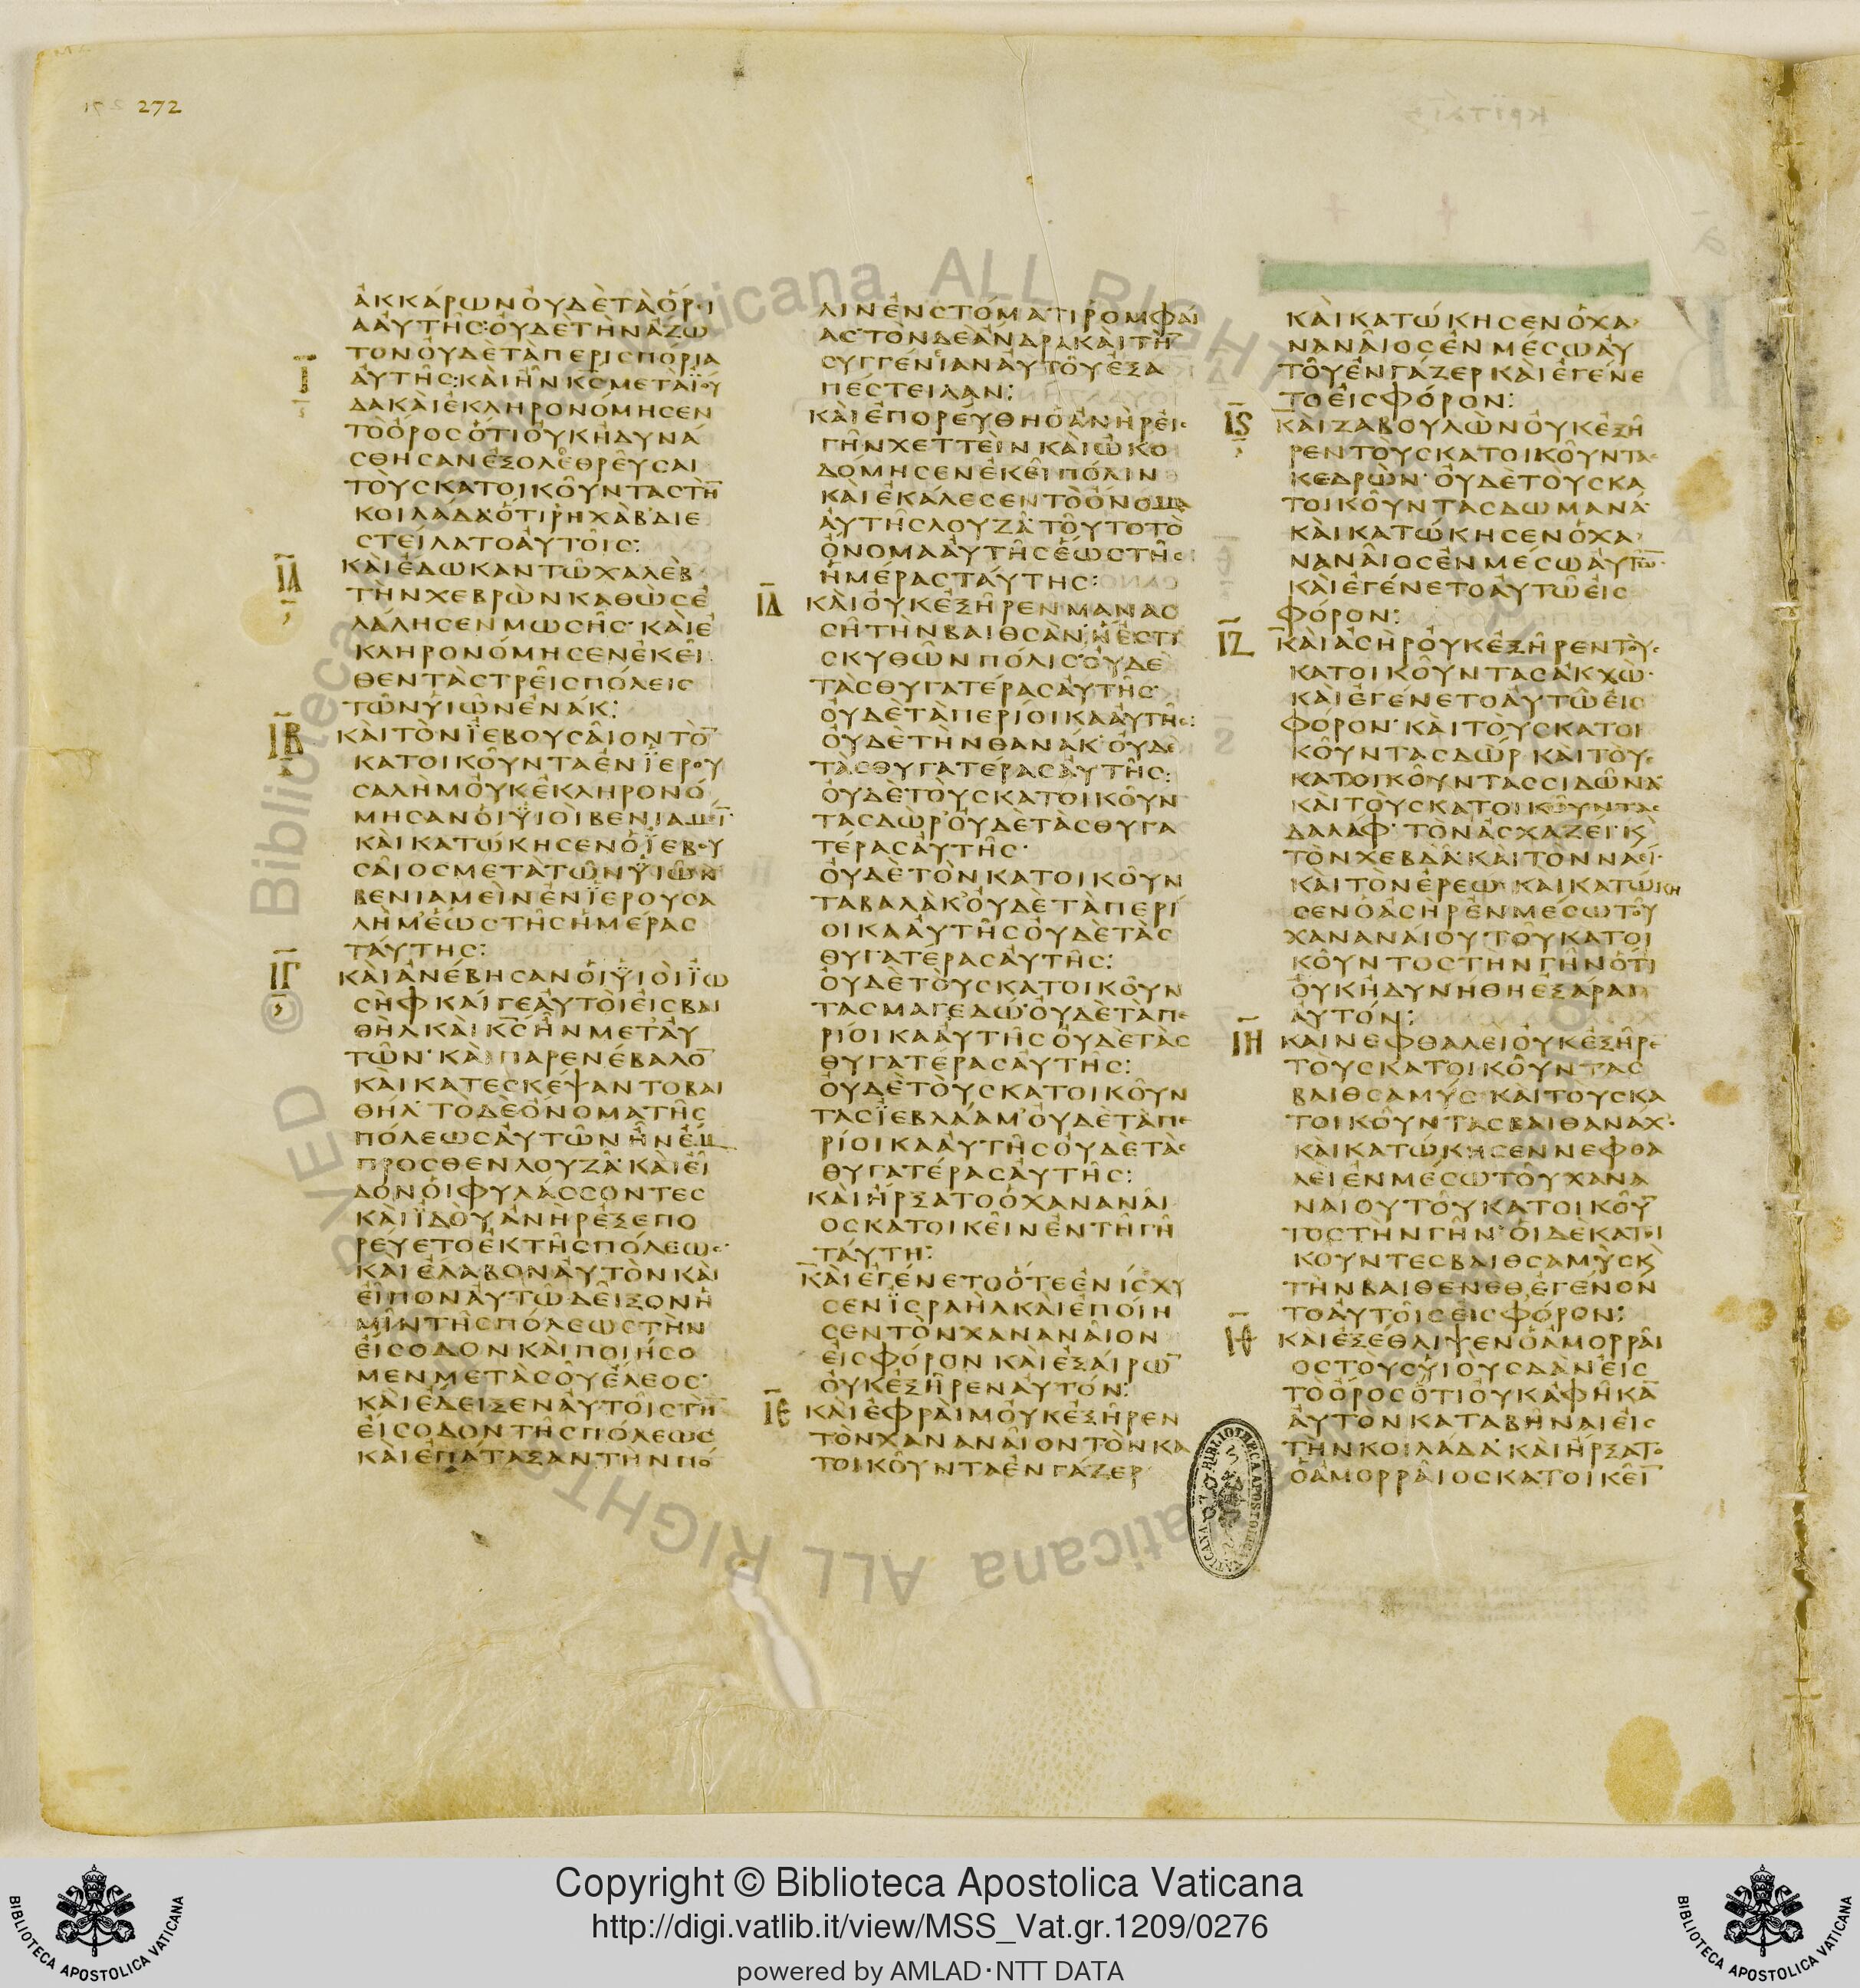 272
ἀκκάρων οὐδὲ τὰ ὅρι
α αὐτῆς· οὐδὲ τὴν ἄζω
τον οὐδὲ τὰ περισπόρια
Ι
αὐτῆς: καὶ ἦν κς μετὰ ϊού
δα καὶ ἐκληρονόμησεν
τὸ ὄρος ὅτι οὐκ ἠδυνά
σθησαν ἐξολεθρεῦσαι
τοὺς κατοικοῦντας τὴ
κοιλάδα· ὅτι ῥηχὰβ διε
στείλατο αὐτοῖς:
ΙΑ
καὶ ἔδωκαν τῶ χαλὲβ
τὴν χεβρὼν καθὼς ἐ
λάλησεν μωσῆς· καὶ ἐ
κληρονόμησεν ἐκεῖ
θεν τὰς τρεῖς πόλεις
τῶν υἱῶν ἐνάκ:
ΙΒ
καὶ τὸν ϊεβουσαῖον τὸ
κατοικοῦντα ἐν ϊερου
σαλὴμ οὐκ ἐκληρονό
μησαν οἱ ϋἱοὶ βενιαμι
καὶ κατώκησεν ὁ ϊεβου
σαῖος μετὰ τῶν ϋἱῶν
βενιαμεὶν ἐν ϊερουσα
λὴμ ἕως τῆς ἡμέρας
ταύτης:
ΙΓ
καὶ ἀνέβησαν οἱ ϋἱοὶ ϊω
σὴφ καί γε αὐτοὶ εἰς βαι
θὴλ καὶ κς ἦν μετ αὐ
τῶν· καὶ παρενέβαλο
καὶ κατεσκέψαντο βαι
θήλ· τὸ δὲ ὄνομα τῆς
πόλεως αὐτῶν ἦν ἔμ
προσθεν λουζά· καὶ εἶ
δον οἱ φυλάσσοντες
καὶ ϊδοὺ ἀνὴρ ἐξεπο
ρεύετο ἐκ τῆς πόλεως·
καὶ ἔλαβον αὐτὸν καὶ
εἶπον αὐτῶ δεῖξον ἡ
μῖν τῆς πόλεως τὴν
εἴσοδον καὶ ποιήσο
μεν μετὰ σοῦ ἔλεος·
καὶ ἔδειξεν αὐτοῖς τὴ
εἴσοδον τῆς πόλεως
καὶ ἐπάταξαν τὴν πό
λιν ἐν στόματι ῥομφαί
ας· τὸν δὲ ἄνδρα καὶ τὴ
συγγένιαν αὐτοῦ ἐξα
πέστειλαν:
καὶ ἐπορεύθη ὁ ἀνὴρ εἰς
γῆν χεττεὶν καὶ ᾠκο
δόμησεν ἐκεῖ πόλιν
καὶ ἐκάλεσεν τὸ ὄνομα
αὐτῆς λουζά· τοῦτο τὸ
ὄνομα αὐτῆς ἕως τῆς
ἡμέρας ταύτης:
ΙΔ
καὶ οὐκ ἐξῆρεν μανασ
σῆ τὴν βαιθσὰν· ἥ ἐστι
σκυθῶν πόλις· οὐδὲ
τὰς θυγατέρας αὐτῆς·
οὐδὲ τὰ περίοικα αὐτῆς:
οὐδὲ τὴν θανάκ· οὐδὲ
τὰς θυγατέρας αὐτῆς:
οὐδὲ τοὺς κατοικοῦν
τας δώρ· οὐδὲ τὰς θυγα
τέρας αὐτῆς·
οὐδὲ τὸν κατοικοῦν
τα βαλὰκ οὐδὲ τὰ περί
οικα αὐτῆς οὐδὲ τὰς
θυγατέρας αὐτῆς:
οὐδὲ τοὺς κατοικοῦν
τας μαγεδώ· οὐδὲ τὰ πε
ρίοικα αὐτῆς οὐδὲ τὰς
θυγατέρας αὐτῆς:
οὐδὲ τοὺς κατοικοῦν
τας ϊεβλαάμ οὐδὲ τὰ πε
ρίοικα αὐτῆς οὐδὲ τὰς
θυγατέρας αὐτῆς:
καὶ ἤρξατο ὁ χαναναῖ
ος κατοικεῖν ἐν τῆ γῆ
ταύτη:
καὶ ἐγένετο ὅτε ἐνίσχυ
σεν ϊσραὴλ καὶ ἐποίη
σεν τὸν χαναναῖον
εἰς φόρον καὶ ἐξαίρω
οὐκ ἐξῆρεν αὐτόν:
ΙΕ
καὶ ἐφράϊμ οὐκ ἐξῆρεν
τὸν χαναναῖον τὸν κα
τοικοῦντα ἐν γάζερ
καὶ κατώκησεν ὁ χα
ναναῖος ἐν μέσω αὐ
τοῦ ἐν γάζερ καὶ ἐγένε
το εἰς φόρον:
ΙϚ
καὶ ζαβουλὼν οὐκ ἐξῆ
ρεν τοὺς κατοικοῦντας
κεδρών· οὐδὲ τοὺς κα
τοικοῦντας δωμανά·
καὶ κατώκησεν ὁ χα
ναναῖος ἐν μέσω αὐτῶ
καὶ ἐγένετο αὐτῶ εἰς
φόρον:
ΙΖ
καὶ ἀσὴρ οὐκ ἐξῆρεν τοὺς
κατοικοῦντας ἀκχώ·
καὶ ἐγένετο αὐτῶ εἰς
φόρον· καὶ τοὺς κατοι
κοῦντας δὼρ καὶ τοὺς
κατοικοῦντας σιδῶνα
καὶ τοὺς κατοικοῦντας
δαλάφ· τὸν ἀσχαζεί· κ
τὸν χεβδά· καὶ τὸν ναεί·
καὶ τὸν ἐρεώ· καὶ κατώκη
σεν ὁ ἀσὴρ ἐν μέσω τοῦ
χαναναίου τοῦ κατοι
κοῦντος τὴν γῆν ὅτι
οὐκ ἠδυνήθη ἐξᾶραι
αὐτόν:
ΙΗ
καὶ νεφθαλεὶ οὐκ ἐξῆρε
τοὺς κατοικοῦντας
βαιθσαμύς· καὶ τοὺς κα
τοικοῦντας βαιθανάχ·
καὶ κατώκησεν νεφθα
λεὶ ἐν μέσω τοῦ χανα
ναίου τοῦ κατοικοῦ
τος τὴν γῆν· οἱ δὲ κατοι
κοῦντες βαιθσαμὺς κ
τὴν βαιθενὲθ ἐγένον
το αὐτοῖς εἰς φόρον:
ΙΘ
καὶ ἐξέθλιψεν ὁ ἀμορραῖ
ος τοὺς υἱοὺς δὰν εἰς
τὸ ὄρος ὅτι οὐκ ἀφῆκα
αὐτὸν καταβῆναι εἰς
τὴν κοιλάδα· καὶ ἤρξατο
ὁ ἀμορραῖος κατοικεῖ
Copyright © Biblioteca Apostolica Vaticana
http://digi.vatlib.it/view/MSS_Vat.gr.1209/0276
powered by AMLAD·NTT DATA
BIBLIOTECA APOSTOLICA VATICANA
BIBLIOTECA APOSTOLICA VATICANA